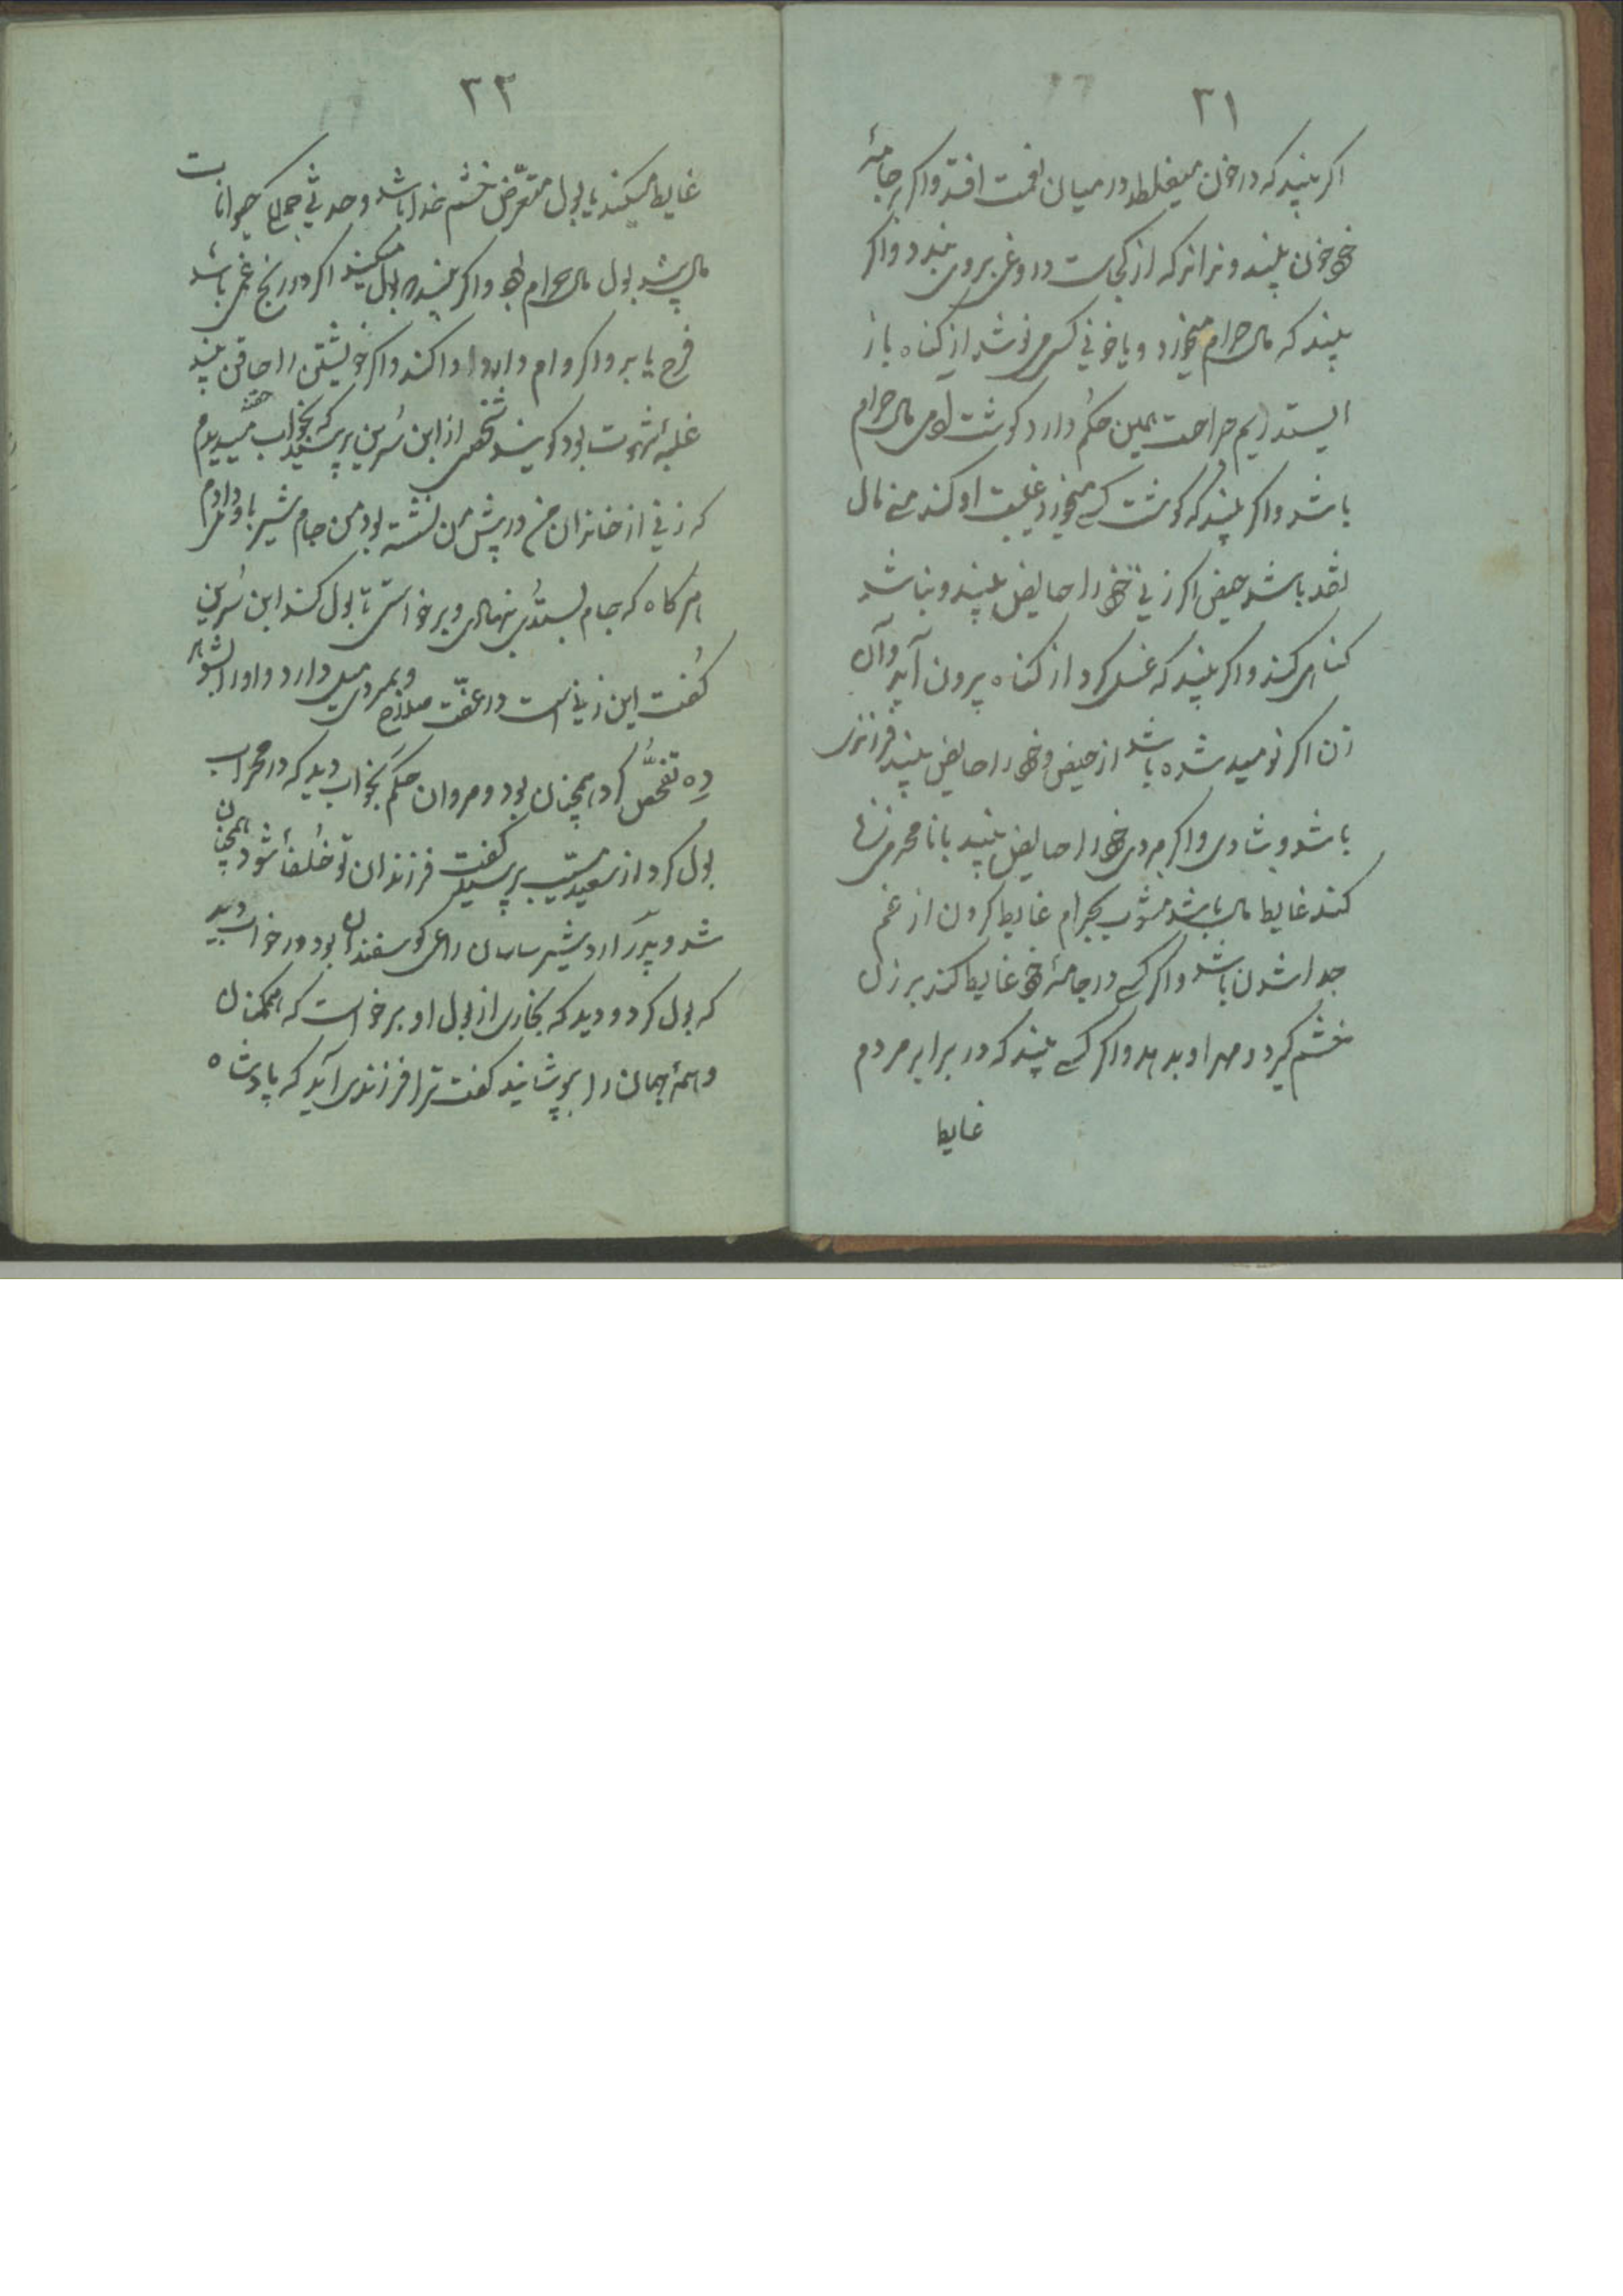 ٣١
اکر بیند که در خون میغلطد در میان نعمت افتد واکر بر جامهٔ
خود خون بیند و نداند که از کجاست دروغی بر وی بندد واکر
بیند که مال حرام میخورد و یا خونی کسی از کناه باز
ایستد ریم جراحت همین حکم دارد کوشت آدمی مال حرام
باشد واکر بیند که کوشت کسی میخورد غیبت او کند منی مال
نقد باشد حیض اکر زنی خود را حایض بیند و نباشد
کناهی کند واکر بیند که غسل کرد از کناه بیرون آید وآن
زن اکر نومید شده باشد از حیض وخود را حایض بیند فرزندی
باشد وشادی واکر مردی خود را حایض بیند بانامحرمی زنا
کند غایط مال باشد مشوب بحرام غایط کردن از غم
جدا شدن باشد واکر کسی در جامهٔ خود غایط کند بر زن
خشم کیرد ومهر او بدهد واکر کسی بیند که در برابر مردم
غایط
٣٢
غایط میکند یا بول متعرّض خشم خدا باشد وحدثی جمیع حیوانات
مال باشد بول مال حرام بود واکر بیند که بول میکند اکر در رنج غمی باشد
فرح یابد واکر وام دارد ادا کند واکر خویشتن را حاقن بیند
غلبهٔ شهوت بود کویند شخصی از ابن سرین پرسید که بخواب میدیدم
که زنی از خاندان من در پیش من نشسته بود من جام شیر باو میدادم
هر کاه که جام بستدی بنهادی وبرخواستی تا بول کند ابن سُرین
کفت این زنی است در عفّت صلاح وبمردی میل دارد واورا بشوهر
دِه تفحّص کرد همچنان بود ومروان حکم بخواب دید که در محراب
بول کرد از سعید مسیب پرسید کفت فرزندان تو خلفا شود همچنان
شد وپدر اردشیر ساسان راعی کوسفندان بود در خواب دید
که بول کرد ودید که بخاری از بول او برخواست که همکنان
وهمهٔ جهان را بپوشانید کفت ترا فرزندی آید که پادشاه